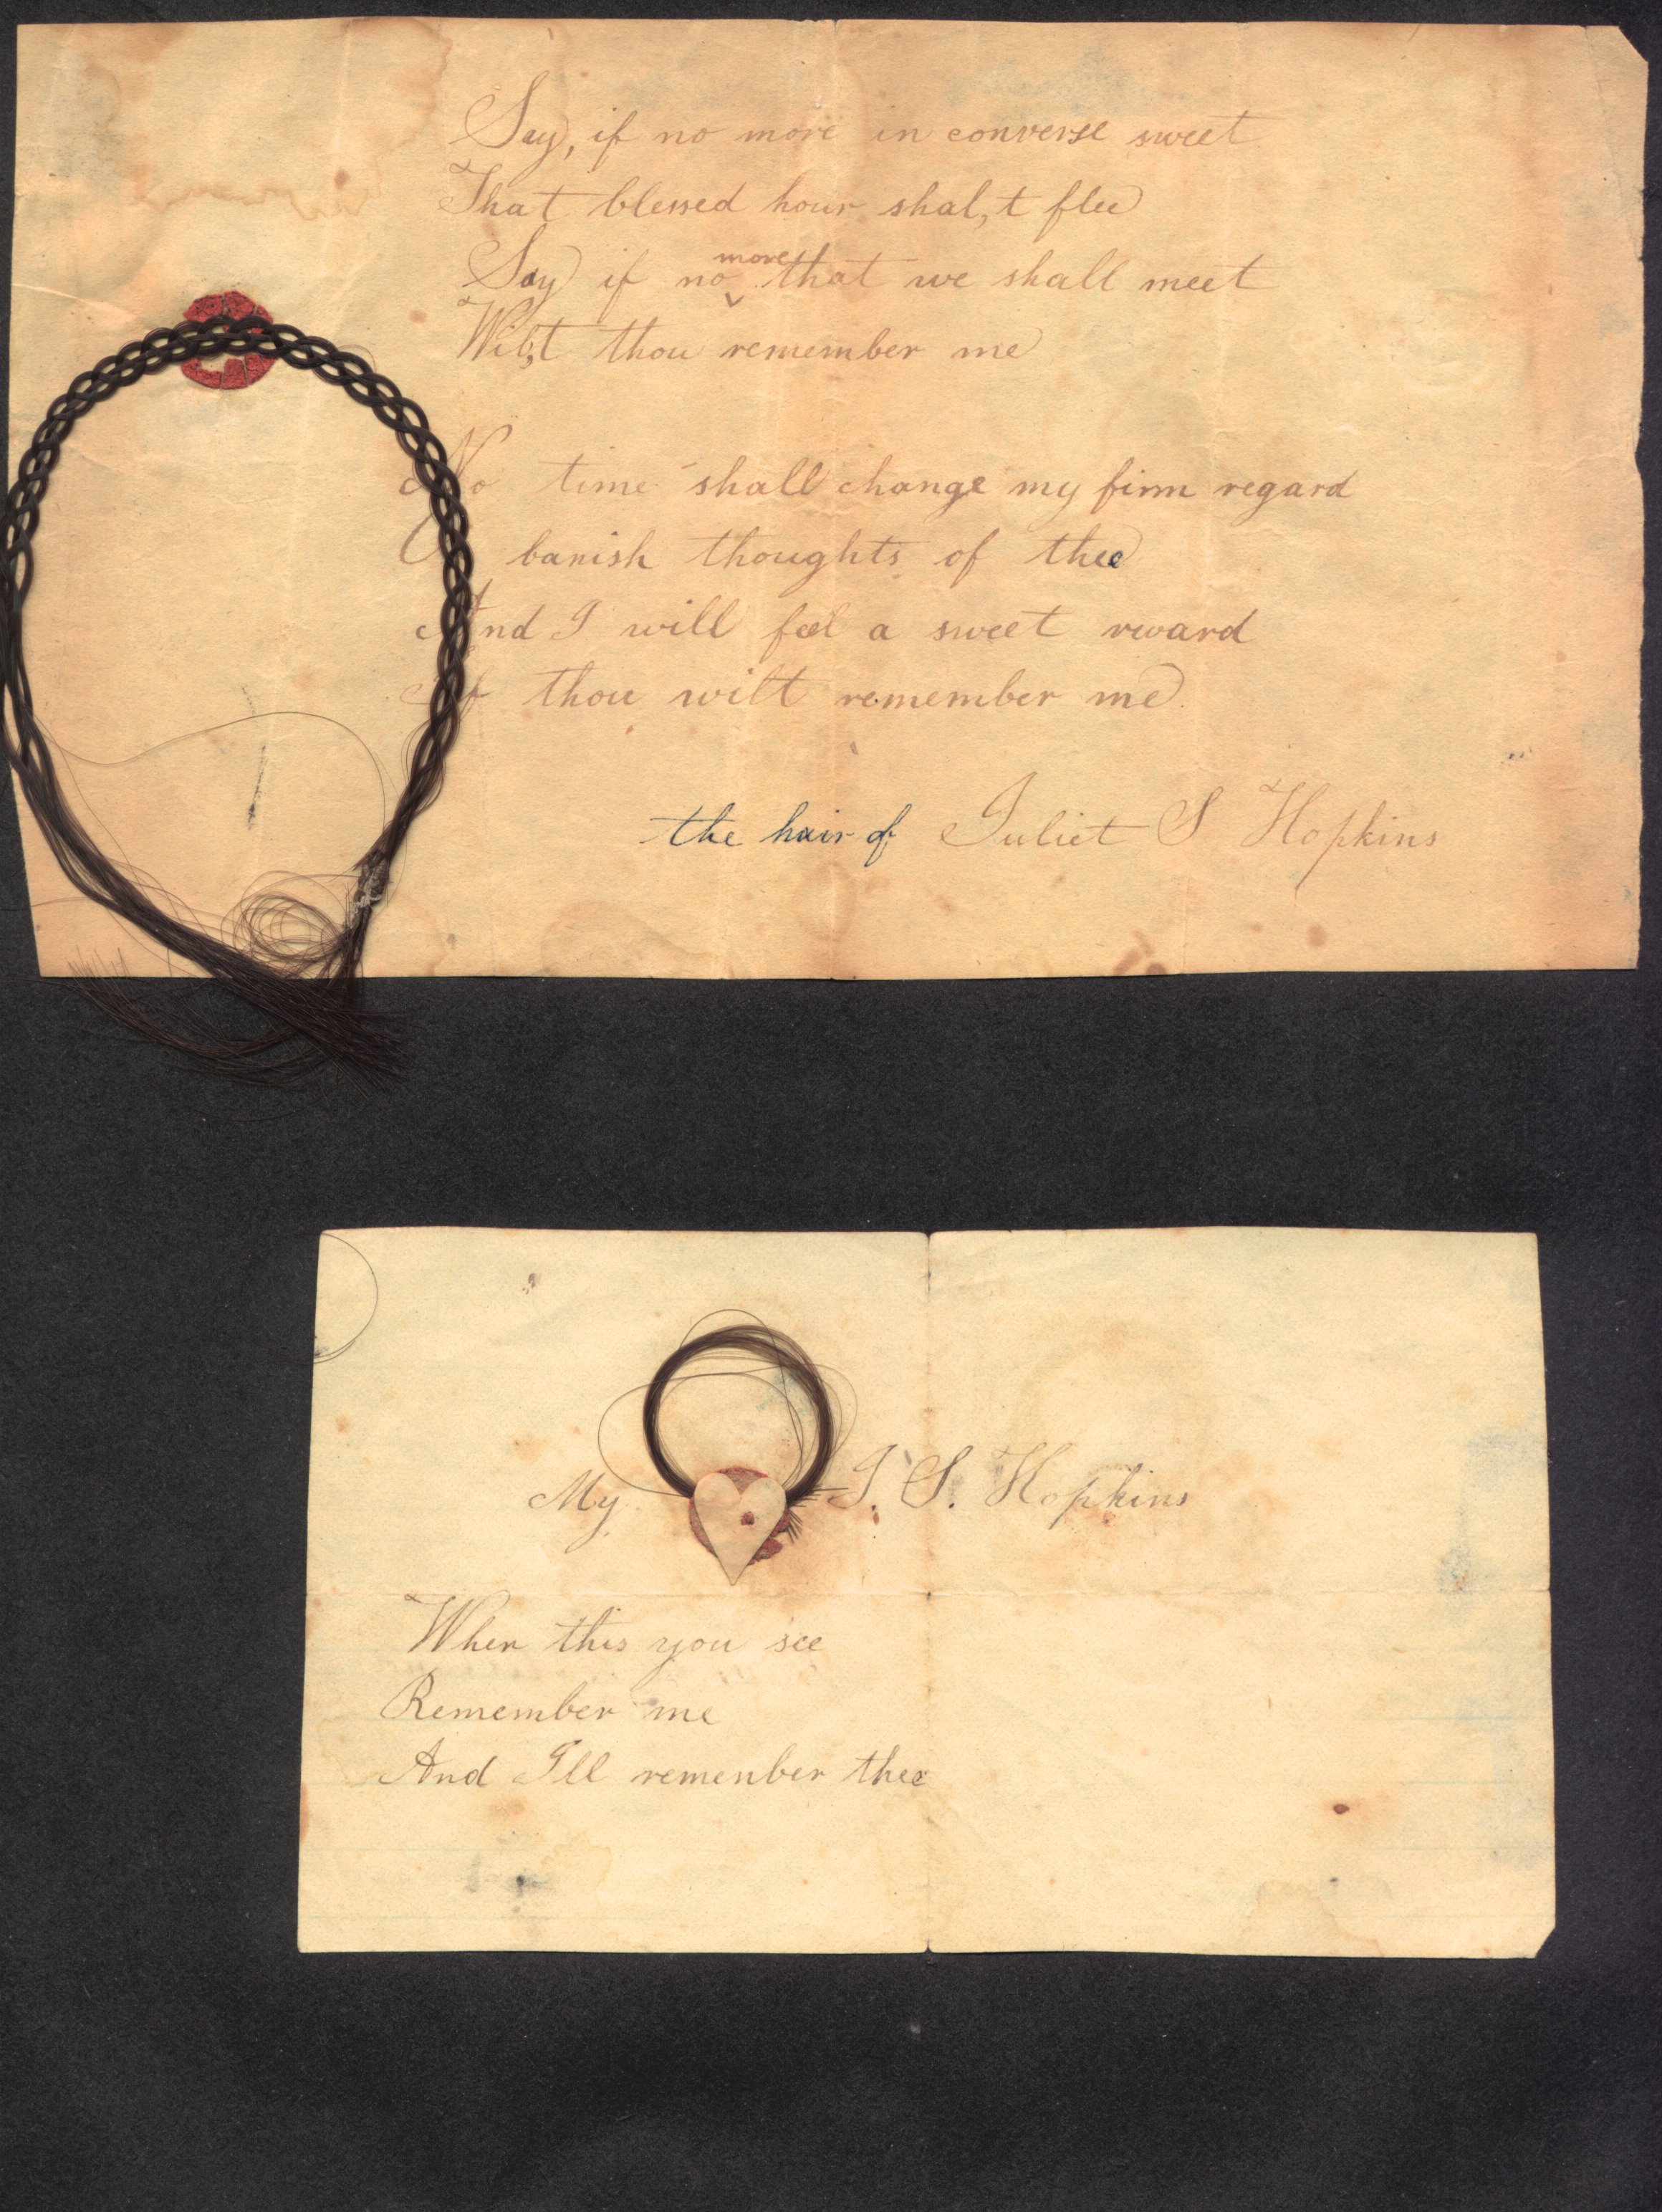 Say, if no more in converse sweet
That blessed hour shal,t flee
Say if no more that we shall meet
Wil,t thou remember me
No time shall change my firm regard
Or banish thoughts of thee
And I will feel a sweet rward
If thou wilt remember me.
the hair of Juliet S Hopkins
My J. S. Hopkins
When this you see
Remember me
And I'll remember thee